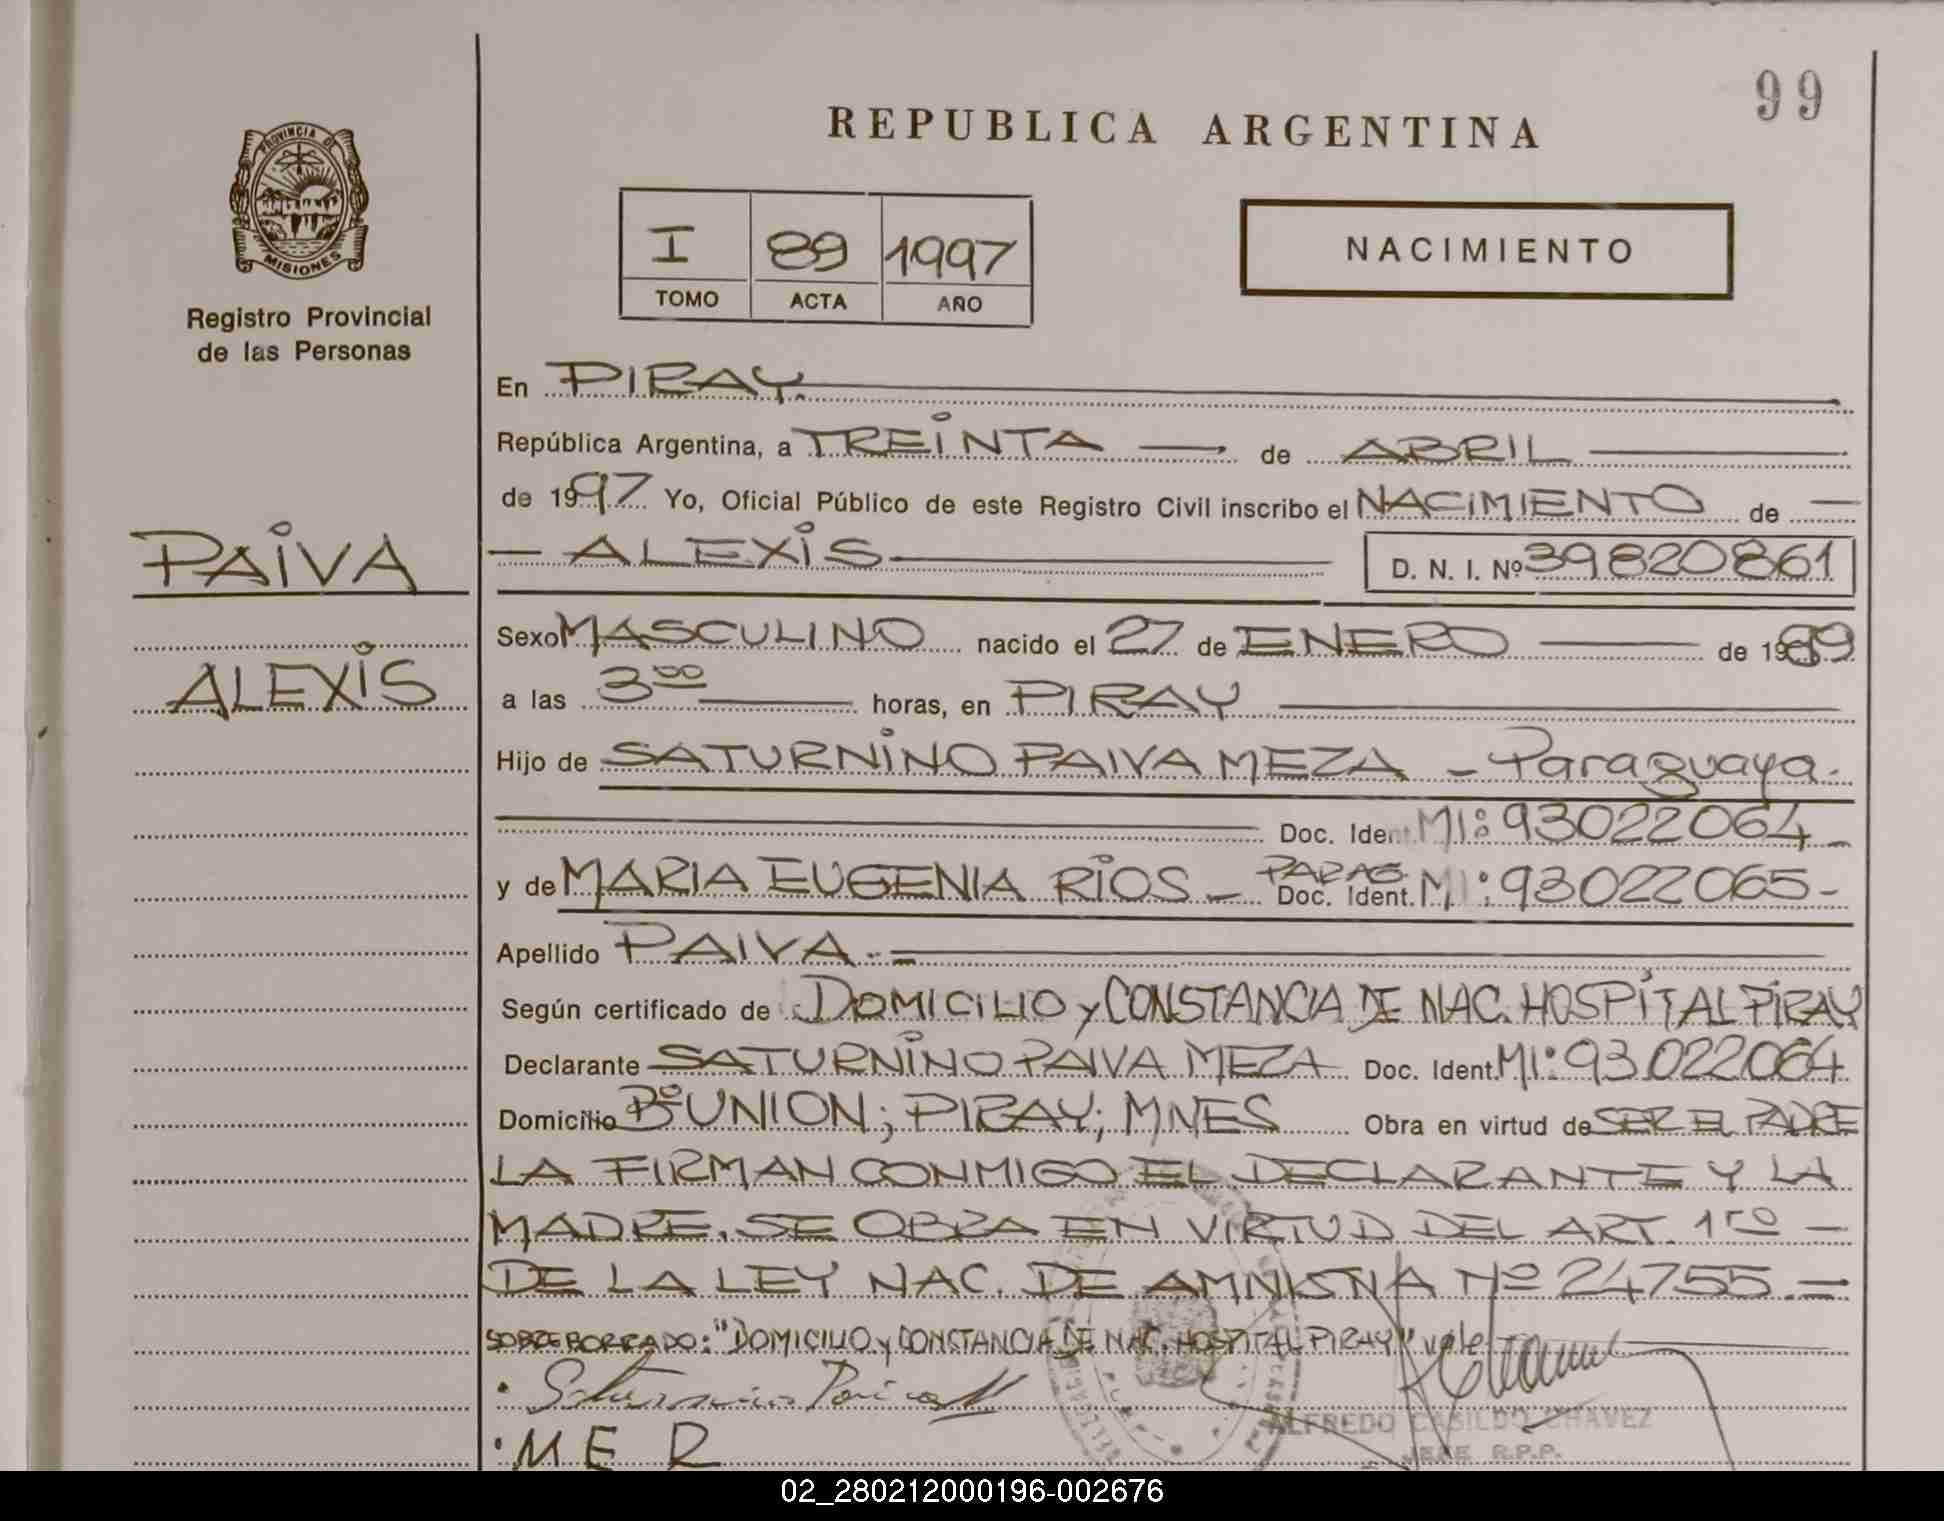 99
REPUBLICA ARGENTINA
PROVINCIA DE
MISIONES
Registro Provincial
de las Personas
I 89 1997
TOMO ACTA AÑO
NACIMIENTO
En PIRAY.
República Argentina, a TREINTA de ABRIL
de 1997 Yo, Oficial Público de este Registro Civil inscribo el NACIMIENTO de
PAIVA
ALEXIS
ALEXIS D. N. I. Nº 39820861
Sexo MASCULINO nacido el 27 de ENERO de 1989
a las 3 00 horas, en PIRAY
Hijo de SATURNINO PAIVA MEZA - Paraguaya.
Doc. Ident. MI: 93022064 -
y de MARIA EUGENIA RIOS - PARAG. Doc. Ident. MI: 93022065 -
Apellido PAIVA.-
Según certificado de DOMICILIO y CONSTANCIA DE NAC. HOSPITAL PIRAY
Declarante SATURNINO PAIVA MEZA Doc. Ident. MI: 93.022064
Domicilio Bº UNION; PIRAY; MNES Obra en virtud de SER EL PADRE
LA FIRMAN CONMIGO EL DECLARANTE Y LA
MADRE. SE OBRA EN VIRTUD DEL ART. 1ro -
DE LA LEY NAC. DE AMNISTIA Nº 24755.=
SOBRE BORRADO: "DOMICILIO y CONSTANCIA DE NAC. HOSPITAL PIRAY" vale
Saturnino Paiva M
M E R
ALFREDO CASILDO CHAVEZ
JEFE R.P.P.
02_280212000196-002676